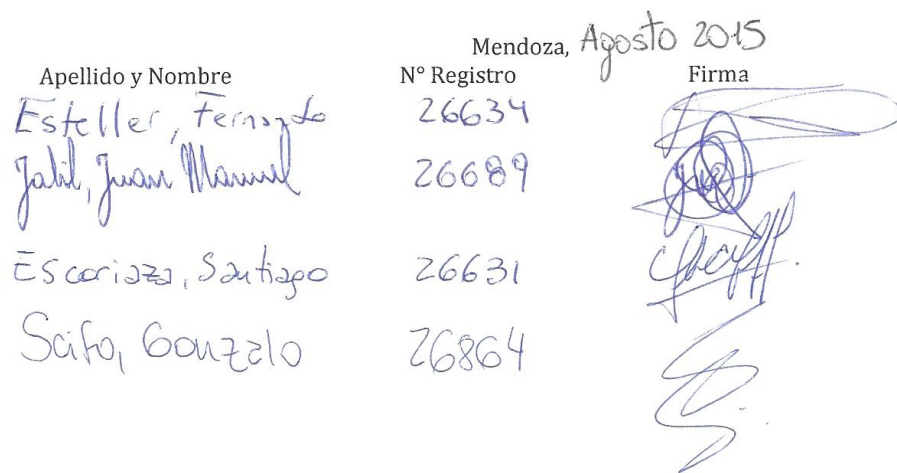 Mendoza, Agosto 2015
Apellido y Nombre N° Registro Firma
Esteller, Fernando 26634
Jalil, Juan Manuel 26689
Escoriaza, Santiago 26631
Scifo, Gonzalo 26864